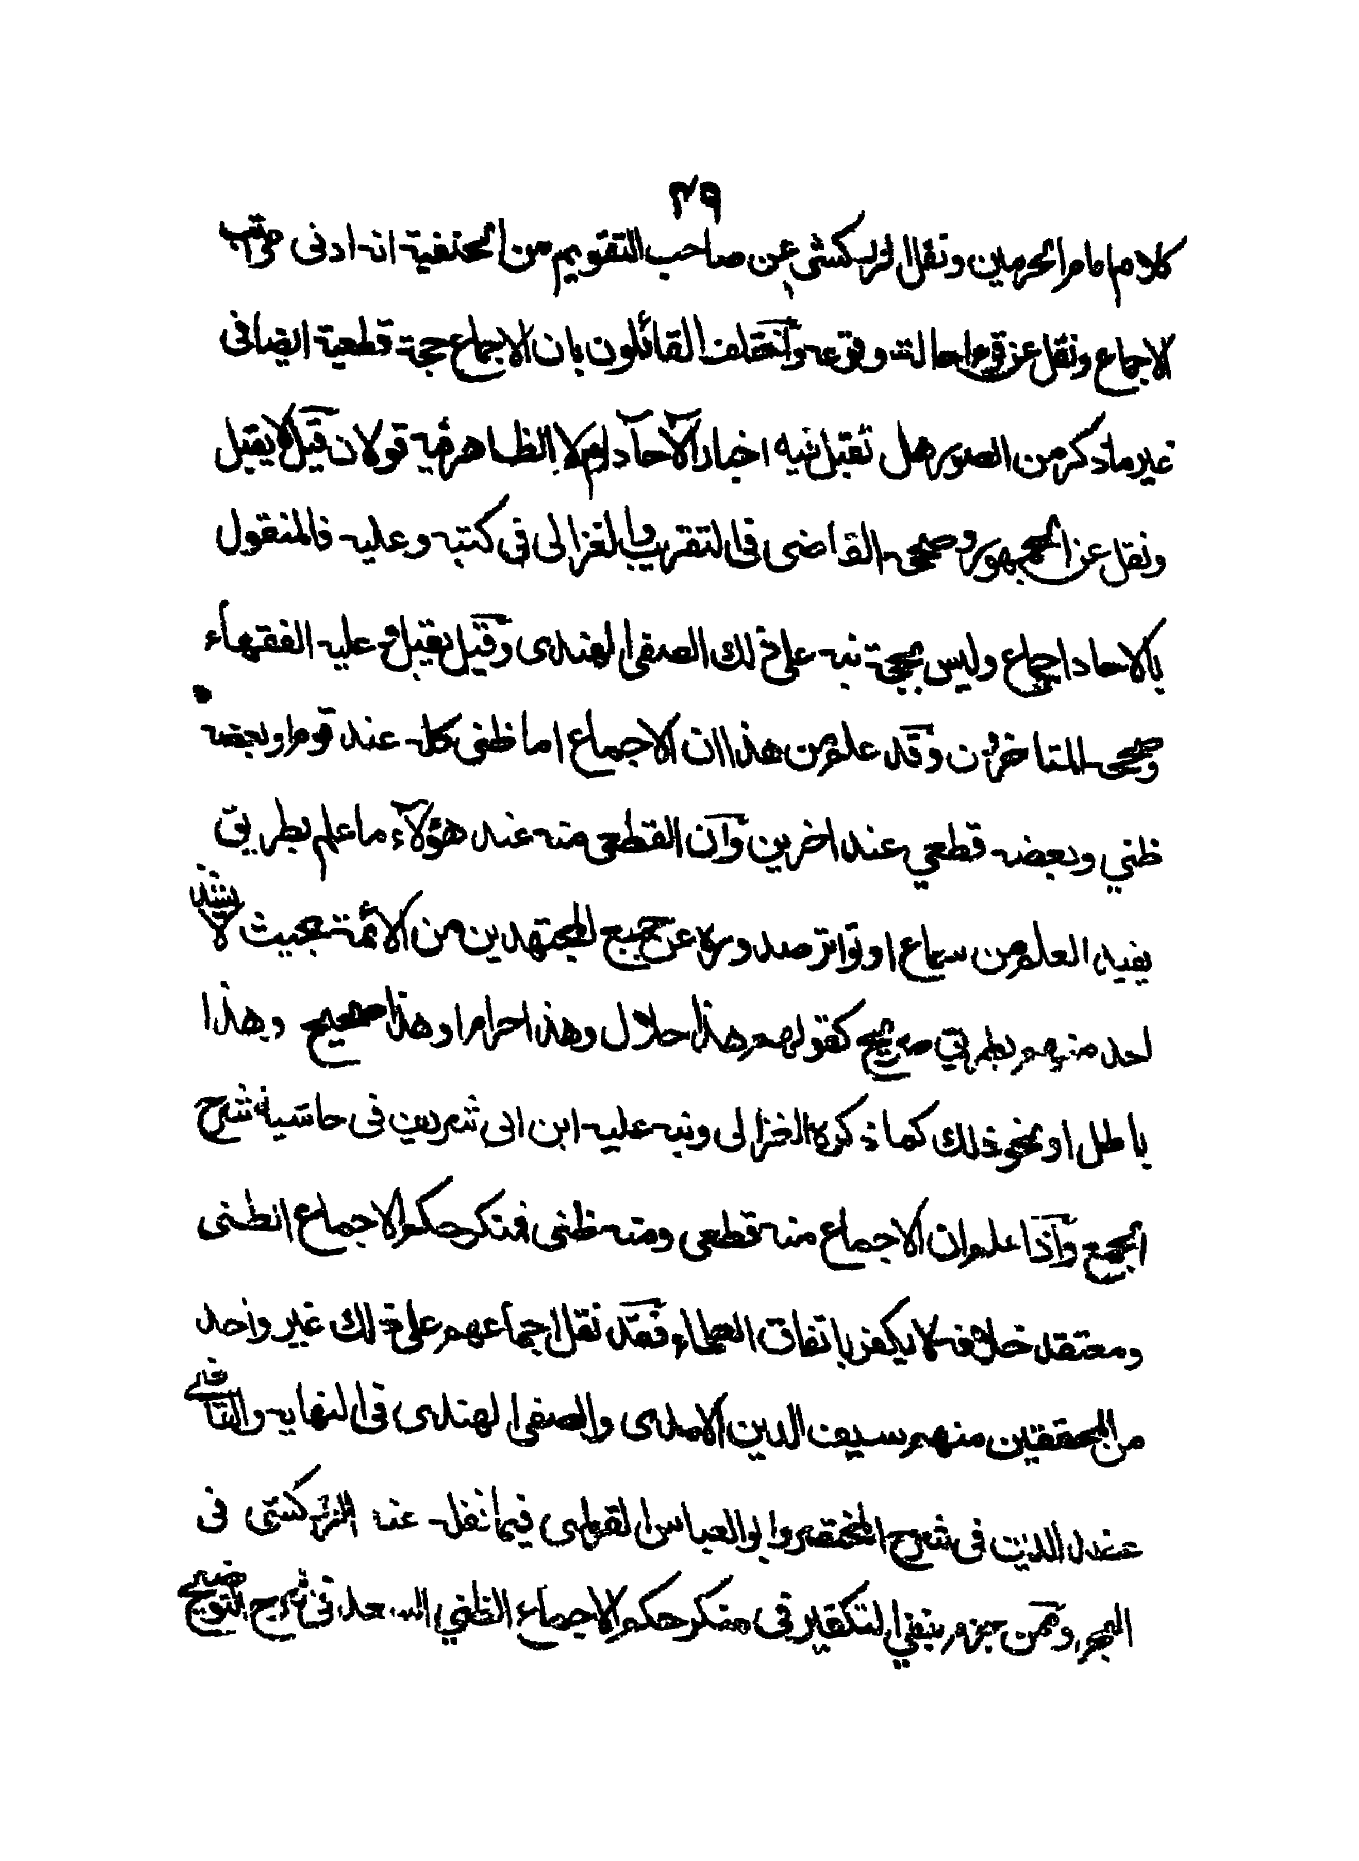 ٤٩
كلام امام الحرمين ونقل الزركشى عن صاحب التقويم من الحنفية انه ادنى مراتب
الاجماع ونقل عن قوم احالة وقوعه واختلف القائلون بان الاجماع حجة قطعية ايضا فى
غير ما ذكر من الصور هل تقبل فيه اخبار الآحاد ام لا الظاهر فيه قولان قيل لا يقبل
ونقل عن الجمهور وصححه القاضى فى التقريب والغزالى فى كتبه وعليه فالمنقول
بالاحاد اجماع وليس بحجة نبه على ذلك الصفى الهندى وقيل يقبل وعليه الفقهاء
وصححه المتاخرون وقد علم من هذا ان الاجماع اما ظنى كله عند قوم او بعضه
ظني وبعضه قطعي عند اخرين وان القطعى منه عند هؤلآء ما علم بطريق
يفيد العلم من سماع او تواتر صدوره عن جميع المجتهدين من الأئمة بحيث لا يشذ
احد منهم بطريق صريح كقولهم هذا حلال وهذا حرام او هذا صحيح وهذا
باطل او نحو ذلك كما ذكره الغزالى ونبه عليه ابن ابى شريف فى حاشية شرح
الجمع واذا علم ان الاجماع منه قطعى ومنه ظنى فمنكر حكم الاجماع الظنى
ومعتقد خلافه لا يكفر باتفاق العلماء فقد نقل اجماعهم على ذلك غير واحد
من المحققين منهم سيف الدين الامدى والصفى الهندى فى النهاية والقاضى
عضد الدين فى شرح المختصر وابو العباس القرطبى فيما نقله عنه الزركشى فى
البحر وممن جزم بنفي التكفير فى منكر حكم الاجماع الظني السعد فى شرح التوضيح